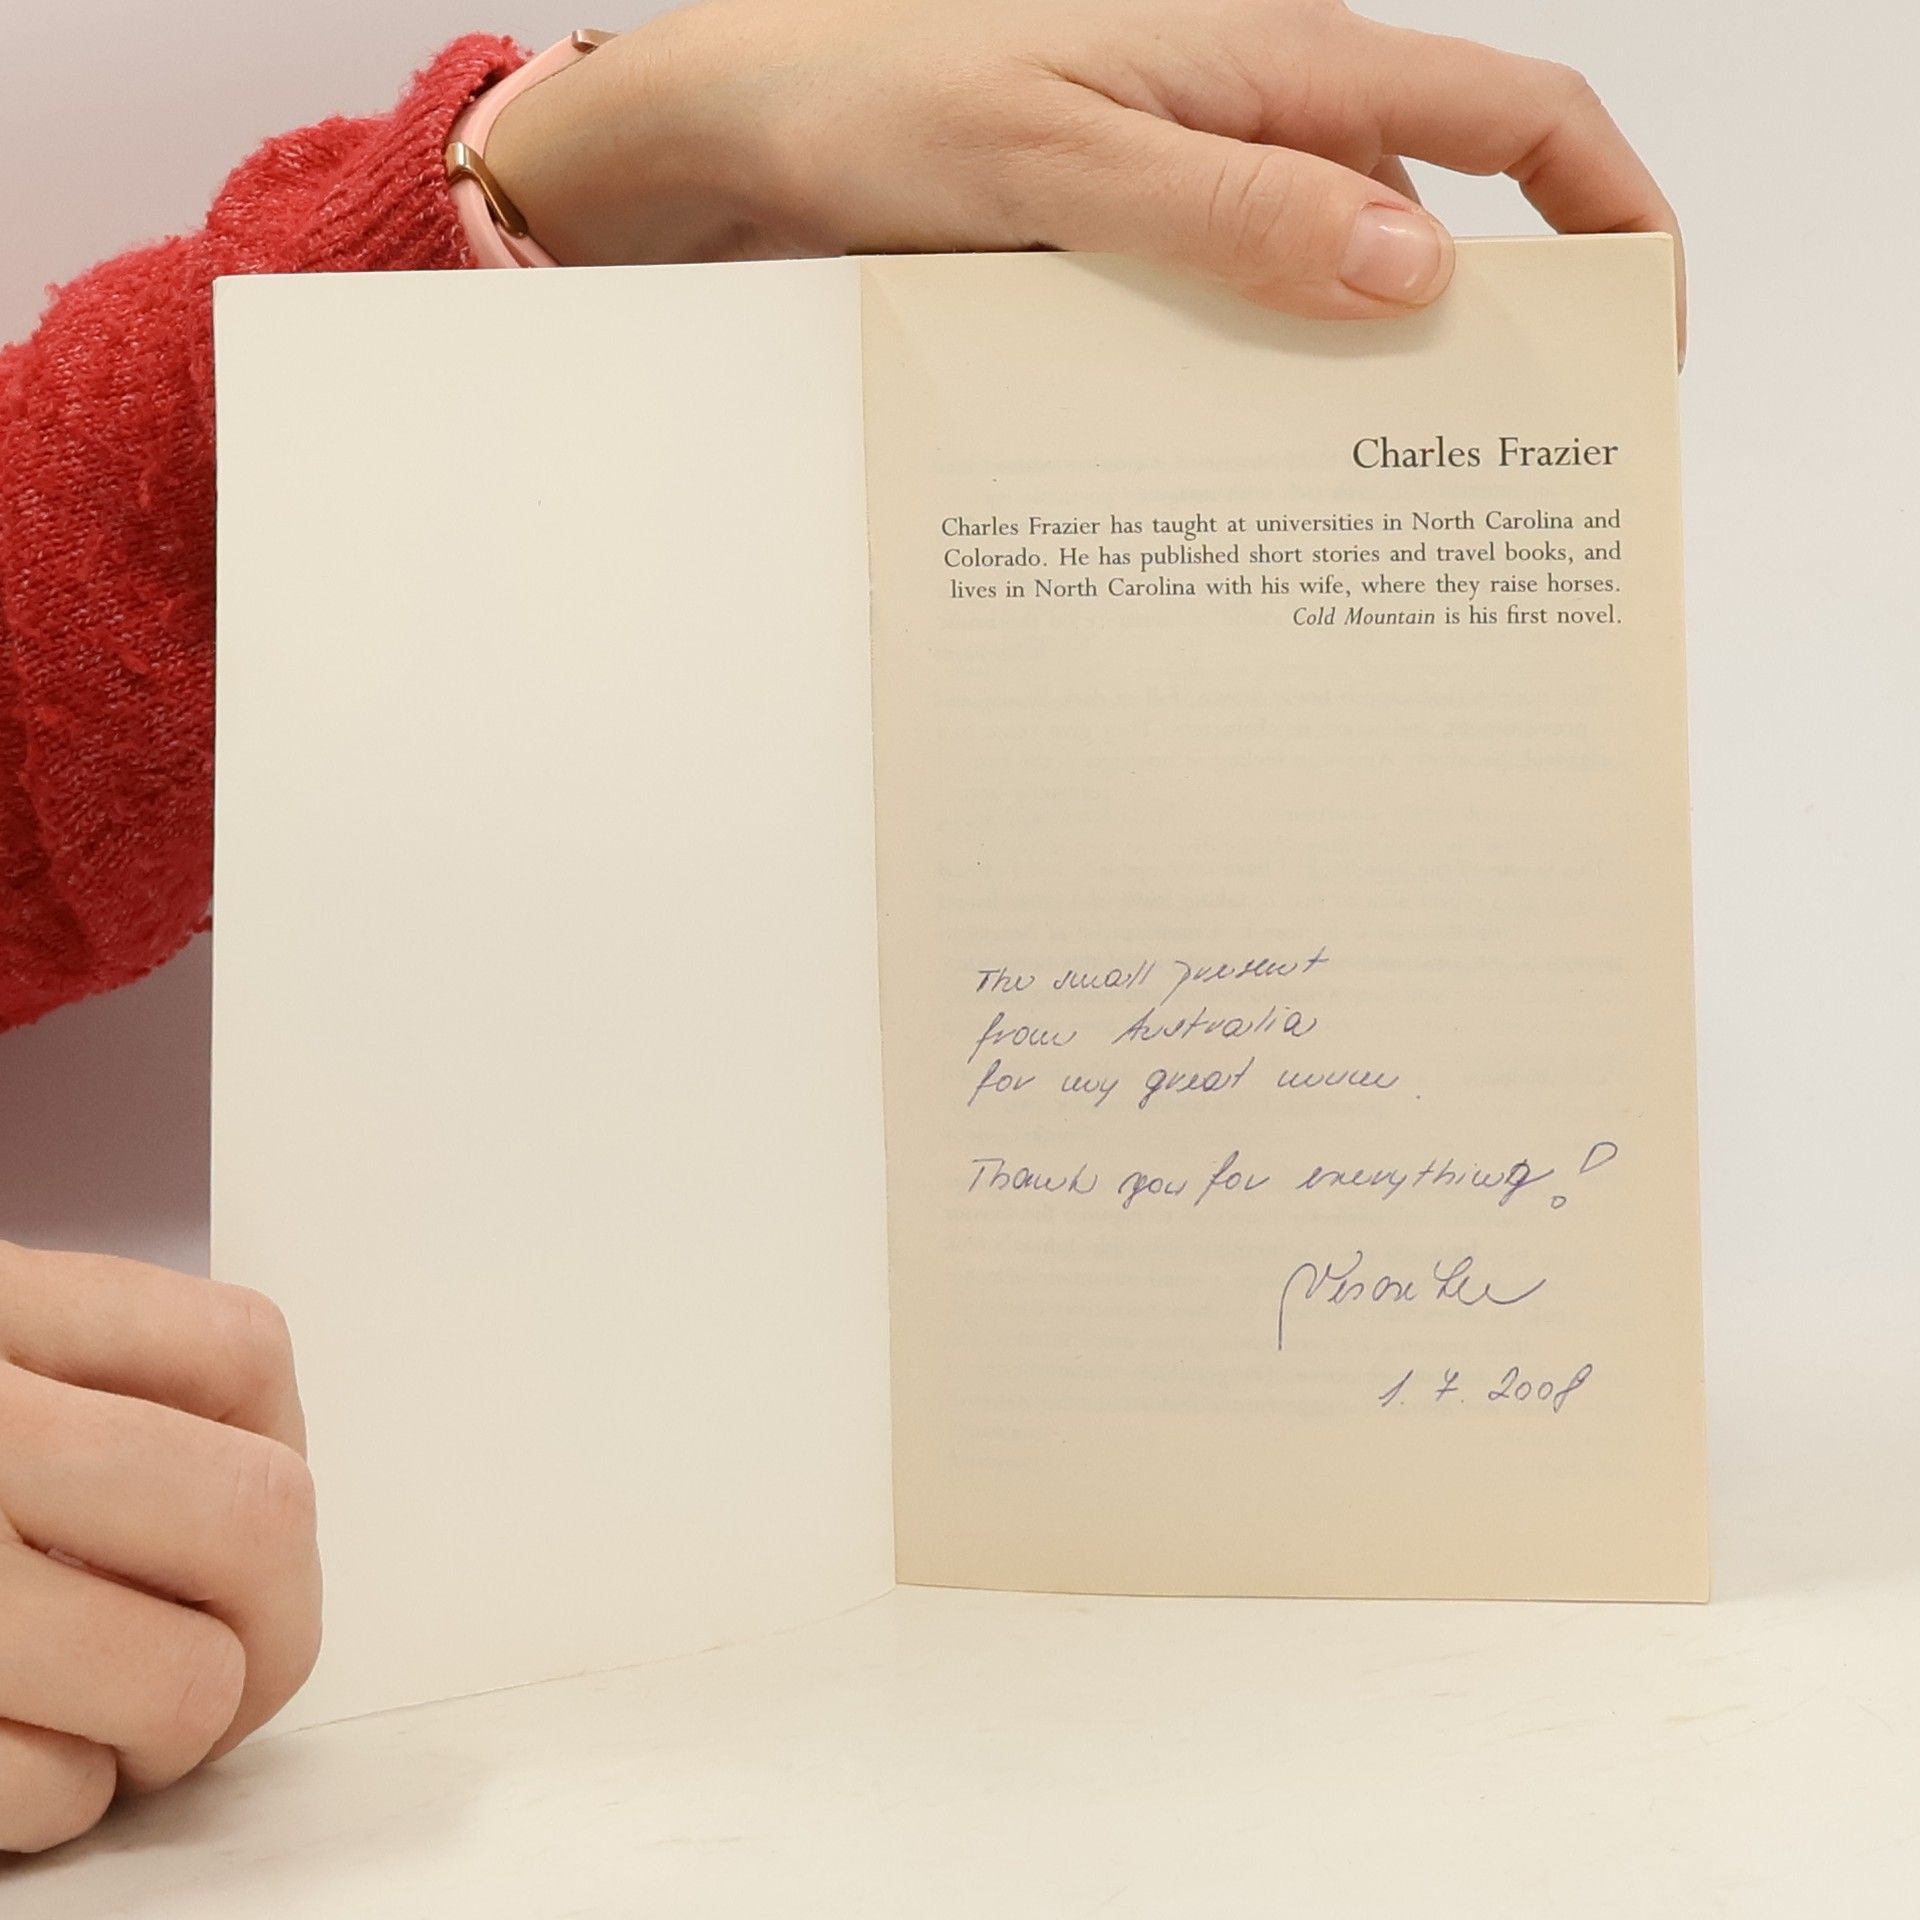 Charles Frazier
Charles Frazier has taught at universities in North Carolina and
Colorado. He has published short stories and travel books, and
lives in North Carolina with his wife, where they raise horses.
Cold Mountain is his first novel.
The small present
from Australia
for my great
Thank you for everything!
1. 7. 2008